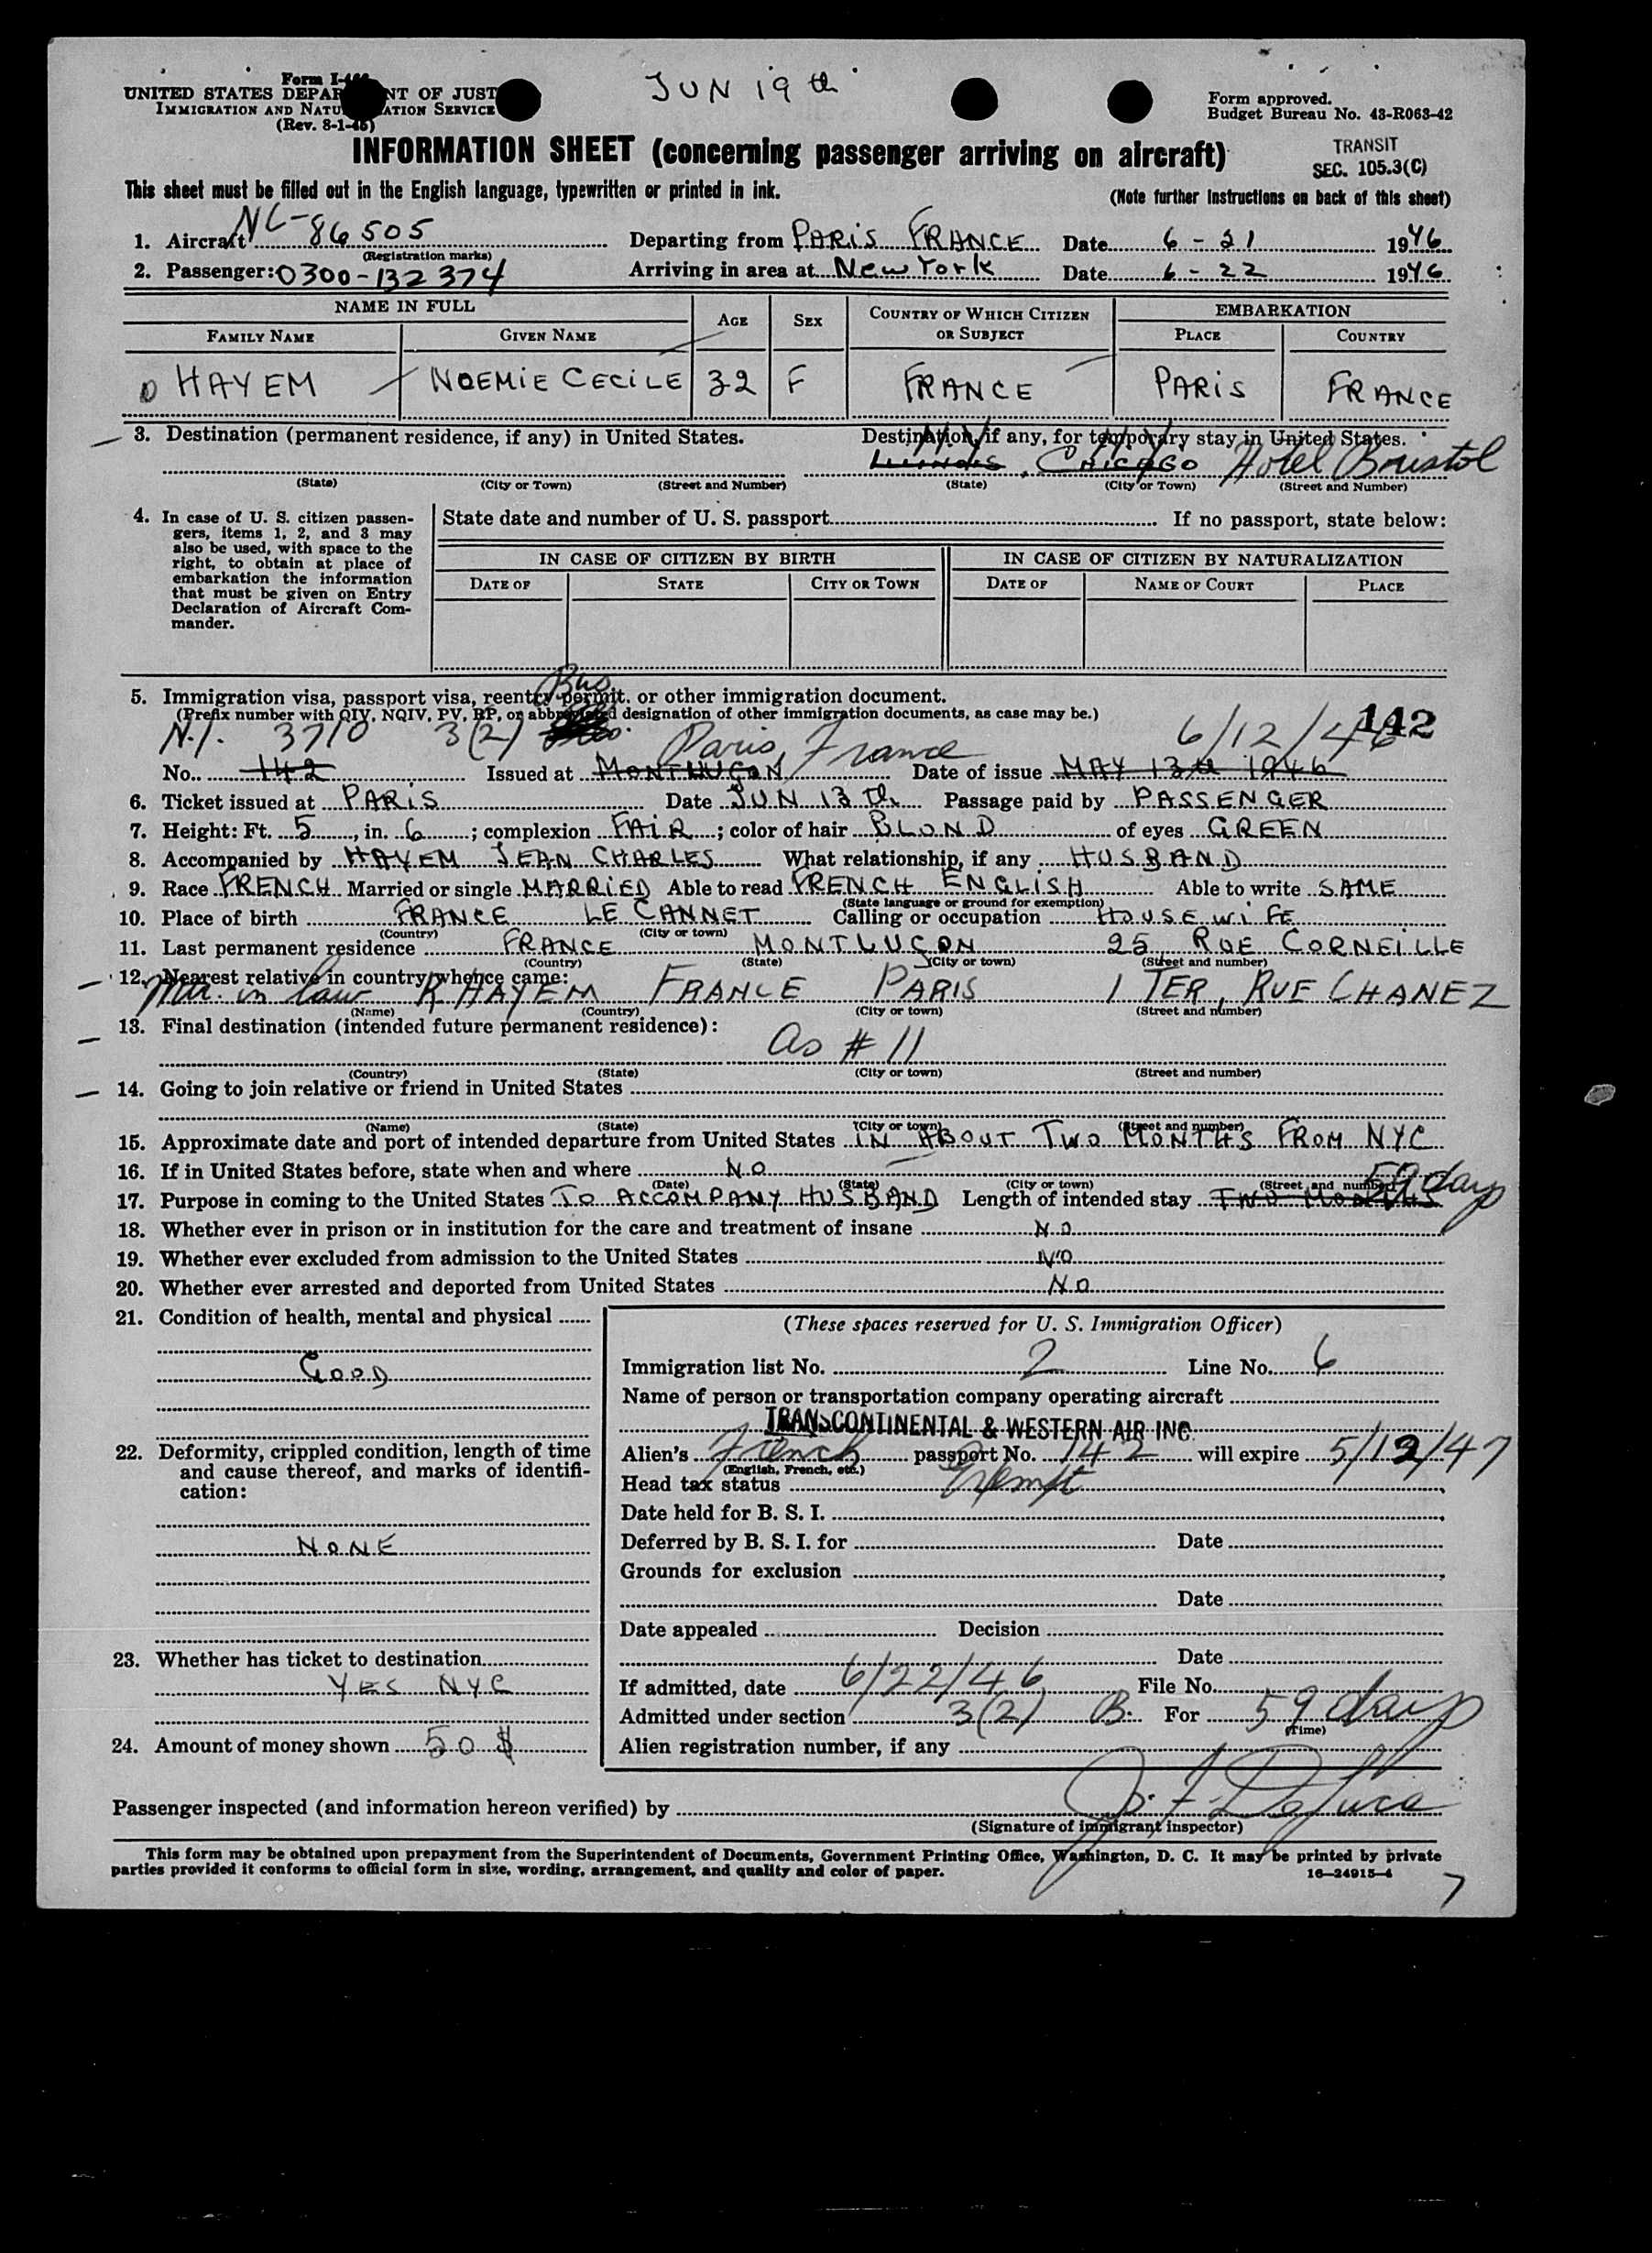 Form I-466
JUN 19th
UNITED STATES DEPARTMENT OF JUSTICE
IMMIGRATION AND NATURALIZATION SERVICE
(Rev. 8-1-45)
Form approved.
Budget Bureau No. 43-R063-42
INFORMATION SHEET (concerning passenger arriving on aircraft)
TRANSIT
SEC. 105.3(C)
This sheet must be filled out in the English language, typewritten or printed in ink.
(Note further instructions on back of this sheet)
1. Aircraft NC-86505 Departing from PARIS FRANCE Date 6-21 1946
(Registration marks)
2. Passenger: 0300-132374 Arriving in area at New York Date 6-22 1946
NAME IN FULL AGE SEX COUNTRY OF WHICH CITIZEN OR SUBJECT EMBARKATION
FAMILY NAME GIVEN NAME PLACE COUNTRY
HAYEM NOEMIE CECILE 32 F FRANCE PARIS FRANCE
3. Destination (permanent residence, if any) in United States. Destination, if any, for temporary stay in United States.
Illinois, CHICAGO Hotel Bristol
(State) (City or Town) (Street and Number) (State) (City or Town) (Street and Number)
4. In case of U. S. citizen passengers, items 1, 2, and 3 may also be used, with space to the right, to obtain at place of embarkation the information that must be given on Entry Declaration of Aircraft Commander.
State date and number of U. S. passport If no passport, state below:
IN CASE OF CITIZEN BY BIRTH IN CASE OF CITIZEN BY NATURALIZATION
DATE OF STATE CITY OR TOWN DATE OF NAME OF COURT PLACE
5. Immigration visa, passport visa, reentry permit, or other immigration document.
(Prefix number with QIV, NQIV, PV, RP, or abbreviated designation of other immigration documents, as case may be.)
N.I. 3710 3(2) Bus Paris, France 6/12/46 142
No. 142 Issued at MONTLUCON Date of issue MAY 13th 1946
6. Ticket issued at PARIS Date JUN 13th Passage paid by PASSENGER
7. Height: Ft. 5, in. 6; complexion FAIR; color of hair BLOND of eyes GREEN
8. Accompanied by HAYEM JEAN CHARLES What relationship, if any HUSBAND
9. Race FRENCH Married or single MARRIED Able to read FRENCH ENGLISH Able to write SAME
(State language or ground for exemption)
10. Place of birth FRANCE LE CANNET Calling or occupation HOUSEWIFE
(Country) (City or town)
11. Last permanent residence FRANCE MONTLUCON 25 RUE CORNEILLE
(Country) (State) (City or town) (Street and number)
12. Nearest relative in country whence came:
in law R HAYEM FRANCE PARIS 1 TER, RUE CHANEZ
(Name) (Country) (City or town) (Street and number)
13. Final destination (intended future permanent residence):
as # 11
(Country) (State) (City or town) (Street and number)
14. Going to join relative or friend in United States
(Name) (State) (City or town) (Street and number)
15. Approximate date and port of intended departure from United States IN ABOUT TWO MONTHS FROM NYC
16. If in United States before, state when and where NO
(Date) (State) (City or town) (Street and number)
17. Purpose in coming to the United States TO ACCOMPANY HUSBAND Length of intended stay TWO MONTHS 59 days
18. Whether ever in prison or in institution for the care and treatment of insane NO
19. Whether ever excluded from admission to the United States NO
20. Whether ever arrested and deported from United States NO
21. Condition of health, mental and physical
GOOD
22. Deformity, crippled condition, length of time and cause thereof, and marks of identification:
NONE
23. Whether has ticket to destination
YES NYC
24. Amount of money shown 50 $
(These spaces reserved for U. S. Immigration Officer)
Immigration list No. 2 Line No. 6
Name of person or transportation company operating aircraft
TRANSCONTINENTAL & WESTERN AIR INC.
Alien's French passport No. 142 will expire 5/12/47
(English, French, etc.)
Head tax status Exempt
Date held for B. S. I.
Deferred by B. S. I. for Date
Grounds for exclusion
Date
Date appealed Decision
Date
If admitted, date 6/22/46 File No.
Admitted under section 3(2) B. For 59 days
(Time)
Alien registration number, if any
Passenger inspected (and information hereon verified) by J. F. DeLuca
(Signature of immigrant inspector)
This form may be obtained upon prepayment from the Superintendent of Documents, Government Printing Office, Washington, D. C. It may be printed by private
parties provided it conforms to official form in size, wording, arrangement, and quality and color of paper.
16—24915-4
7